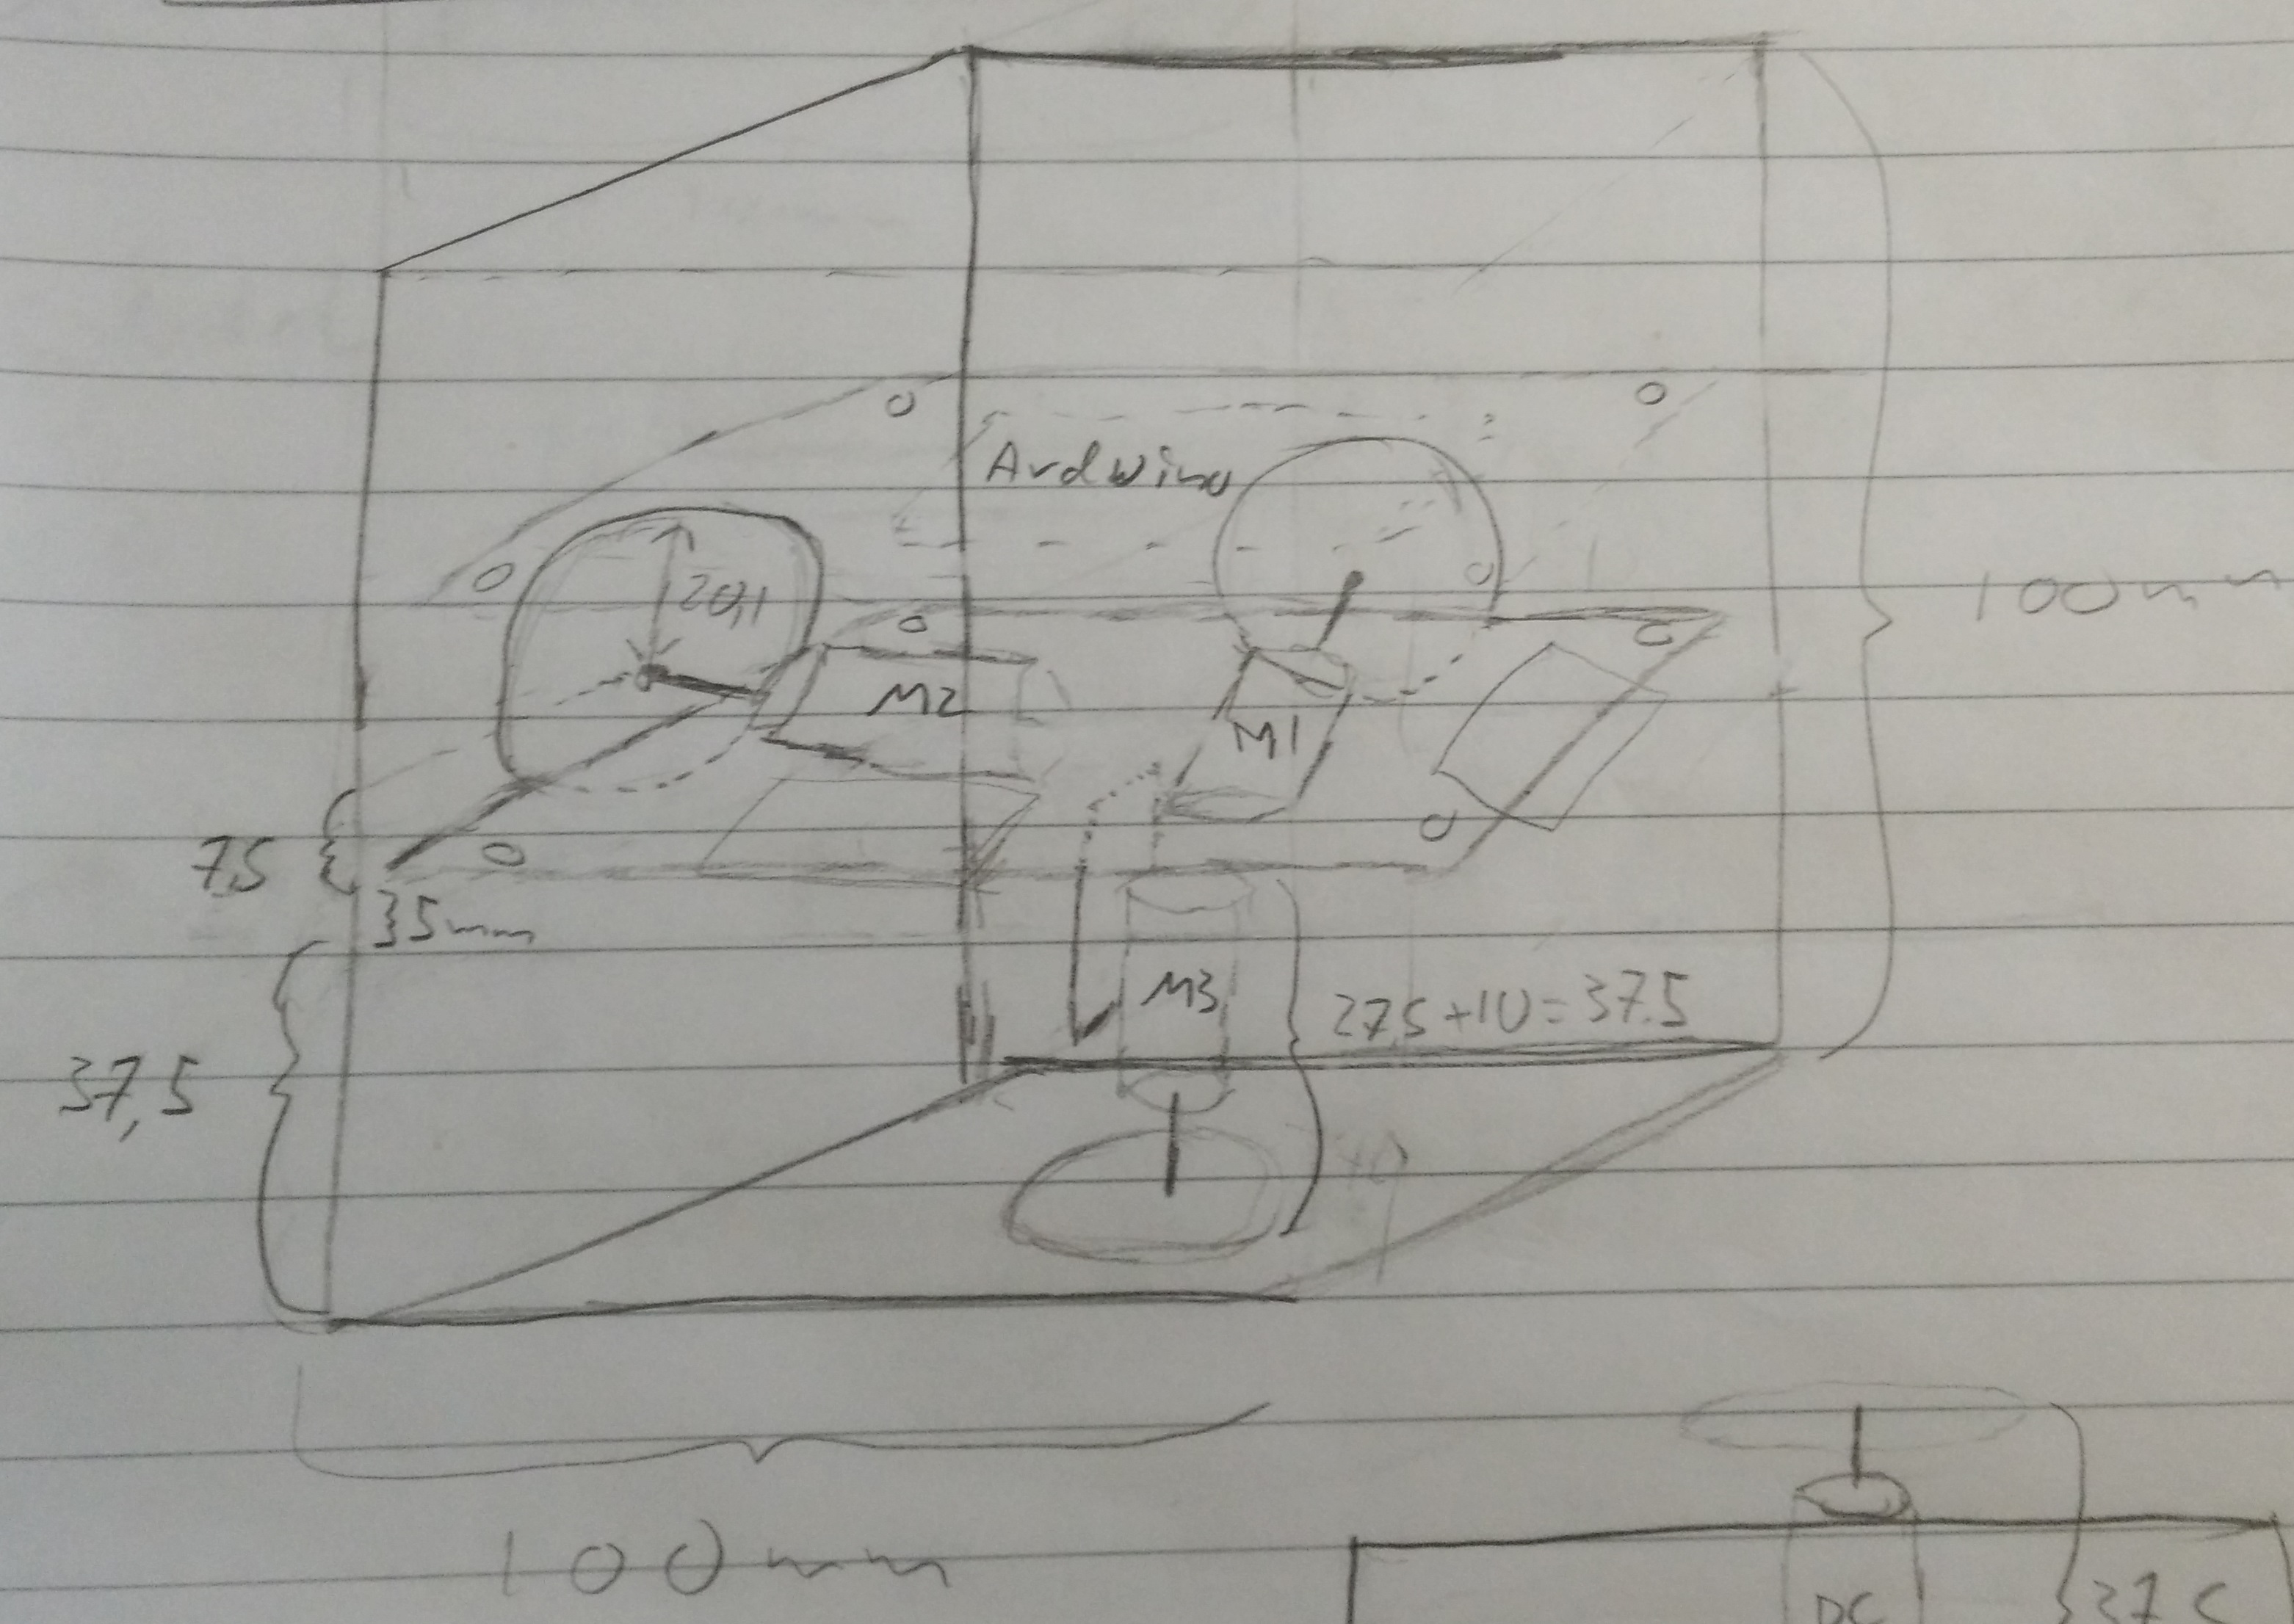 Arduino
100mm
20,1
M2
M1
7,5
35mm
M3
27,5+10=37.5
37,5
100mm
DC
37 5